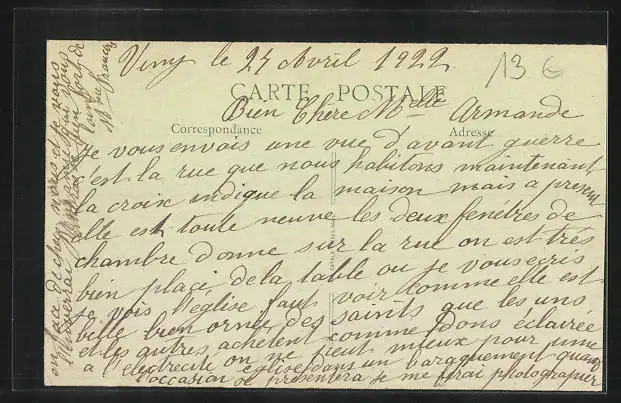 Vimy le 27 Avril 1922
13 €
CARTE POSTALE
Bien Chère Melle Armande
Correspondance Adresse
Je vous envois une vue d'avant guerre
c'est la rue que nous habitons maintenant
la croix indique la maison mais a present
elle est toute neuve les deux fenetres de
chambre donne sur la rue on est très
bien placé, de la table ou je vous ecris
je vois l'église faut voir comme elle est
belle bien ornée des saints que les uns
et les autres achetent comme dons éclairée
a l'électrecité on ne peut mieux pour une
église dans un baraquement quand
l'occasion se presentera je me ferai photographier
en face de chez nous et je vous
l'enverrai